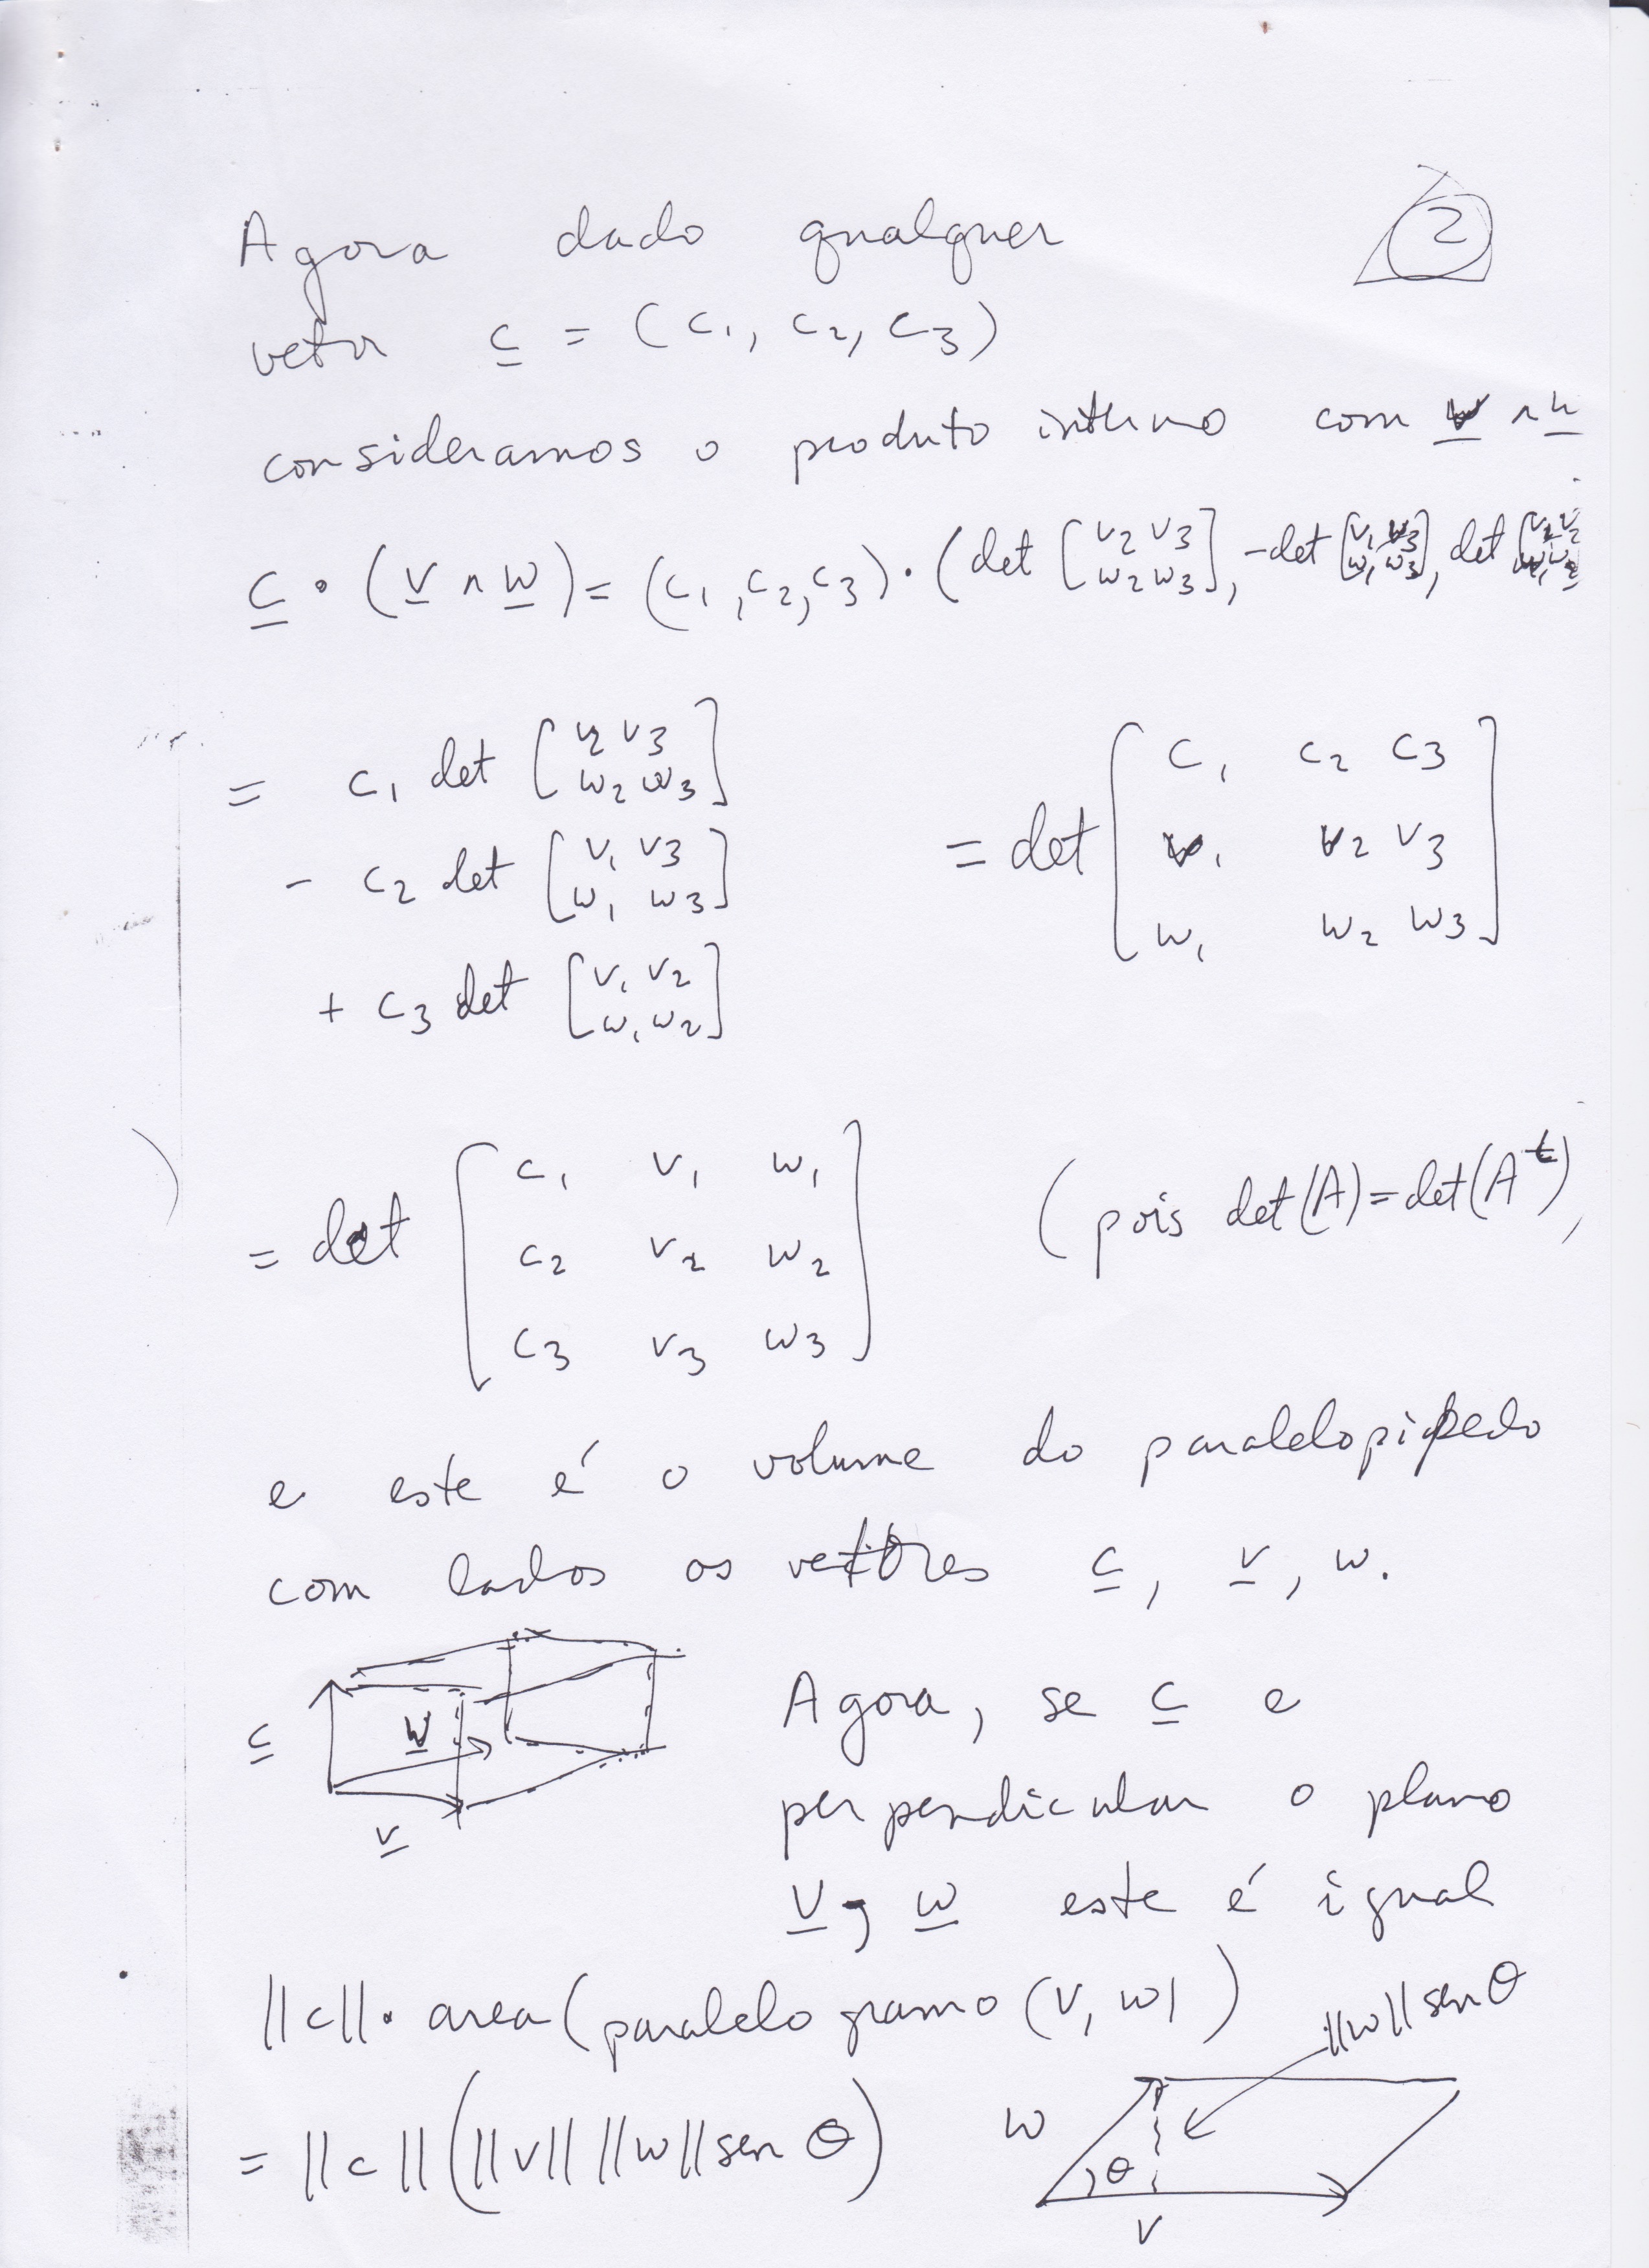 2
Agora dado qualquer
vetor c = (c₁, c₂, c₃)
consideramos o produto interno com v ∧ w
c • (v ∧ w) = (c₁, c₂, c₃) • (det [v₂ v₃; w₂ w₃], -det [v₁ v₃; w₁ w₃], det [v₁ v₂; w₁ w₂]
= c₁ det [v₂ v₃; w₂ w₃]
- c₂ det [v₁ v₃; w₁ w₃]
+ c₃ det [v₁ v₂; w₁ w₂]
= det [c₁ c₂ c₃; v₁ v₂ v₃; w₁ w₂ w₃]
= det [c₁ v₁ w₁; c₂ v₂ w₂; c₃ v₃ w₃] (pois det(A) = det(Aᵗ),
e este é o volume do paralelopipedo
com lados os vetores c, v, w.
c
w
v
Agora, se c e
perpendicular o plano
v, w este é igual
||c|| • area (paralelogramo (v, w) )
= ||c|| (||v|| ||w|| sen θ)
||w|| sen θ
w
θ
v